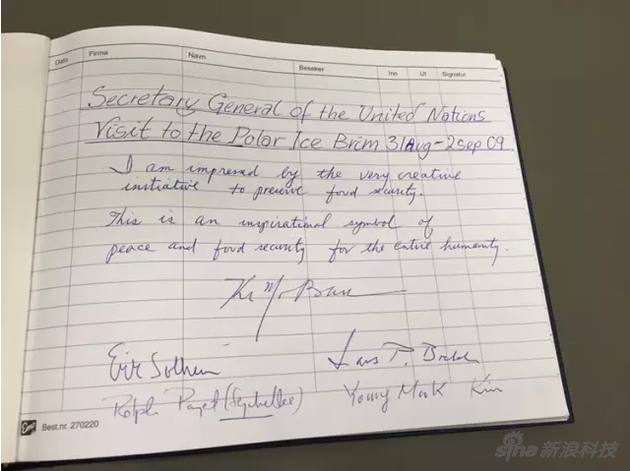 Dato Firma Navn Besøker Inn Ut Signatur
Secretary General of the United Nations
Visit to the Polar Ice Brim 31Aug-2Sep 09.
I am impressed by the very creative
initiative to preserve food security.
This is an inspirational symbol of
peace and food security for the entire humanity.
Ki M. Ban
Erik Solheim
Lars P.
Rolph Payet (Seychelles)
Young Mok Kim
Emo Best.nr. 270220
sina 新浪科技